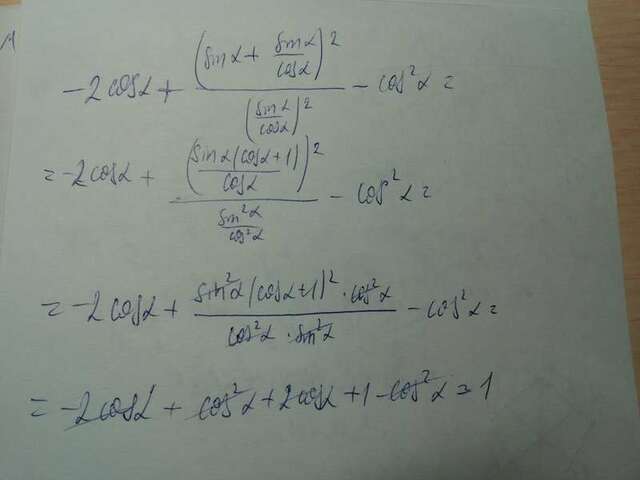 -2cosα + (sinα + sinα/cosα)² / (sinα/cosα)² - cos²α =
= -2cosα + (sinα(cosα+1)/cosα)² / (sin²α/cos²α) - cos²α =
= -2cosα + sin²α(cosα+1)²·cos²α / cos²α·sin²α - cos²α =
= -2cosα + cos²α + 2cosα + 1 - cos²α = 1